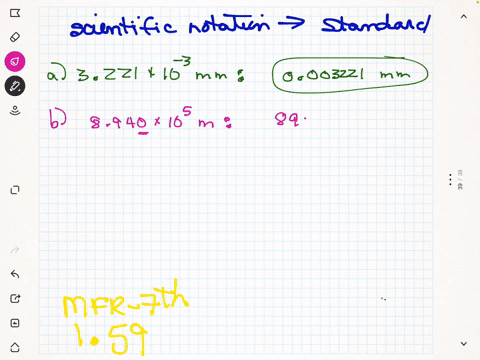 scientific notation → standard
a) 3.221 × 10⁻³ mm : 0.003221 mm
b) 8.940 × 10⁵ m : 89.
MFR - 7th
1.59